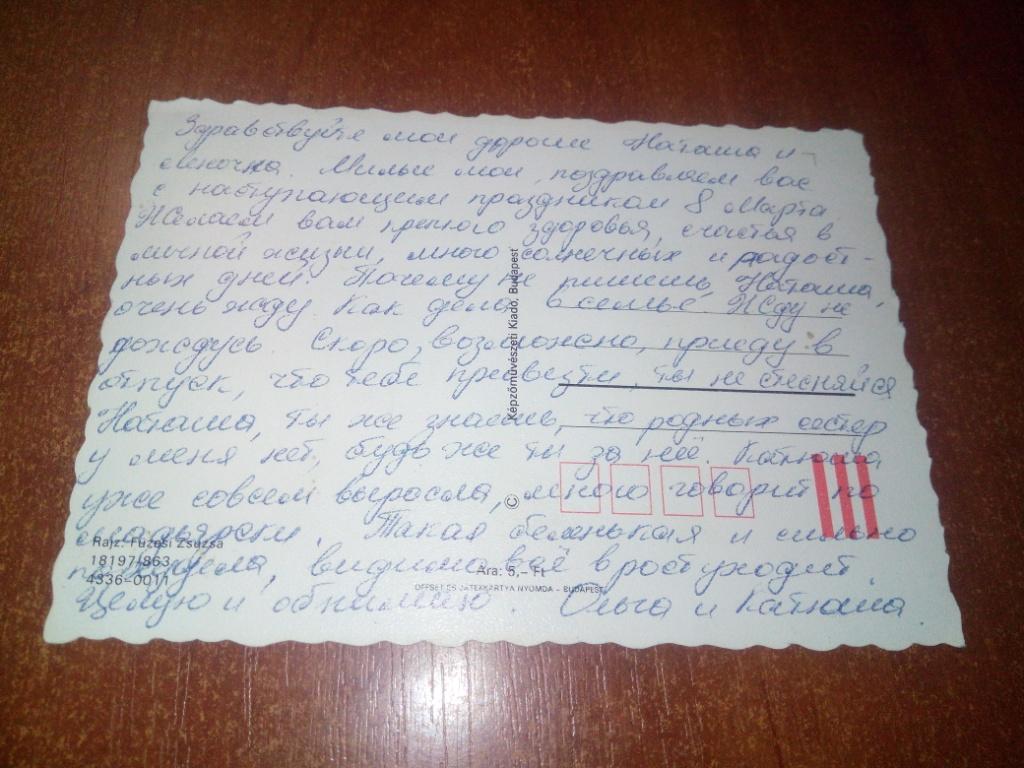 Здравствуйте мои дорогие Наташа и
Леночка. Милые мои, поздравляем вас
с наступающим праздником 8 Марта.
Желаем вам крепкого здоровья, счастья в
личной жизни, много солнечных и радост-
ных дней. Почему не пишешь, Наташа,
очень жду как дела в семье. Жду не
дождусь. Скоро, возможно, приеду в
отпуск, что тебе привезти, ты не стесняйся
Наташа, ты же знаешь, что родных сестёр
у меня нет, будь же ты за неё. Катюша
уже совсем выросла, много говорит по
мадьярски. Такая беленькая и сильно
похудела, видимо всё в рост уходит.
Целую и обнимаю. Ольга и Катюша
Képzőművészeti Kiadó, Budapest
©
Rajz: Füzesi Zsuzsa
18197/863
4336-0011
Ára: 5,– Ft
OFFSET ÉS JÁTÉKKÁRTYA NYOMDA – BUDAPEST